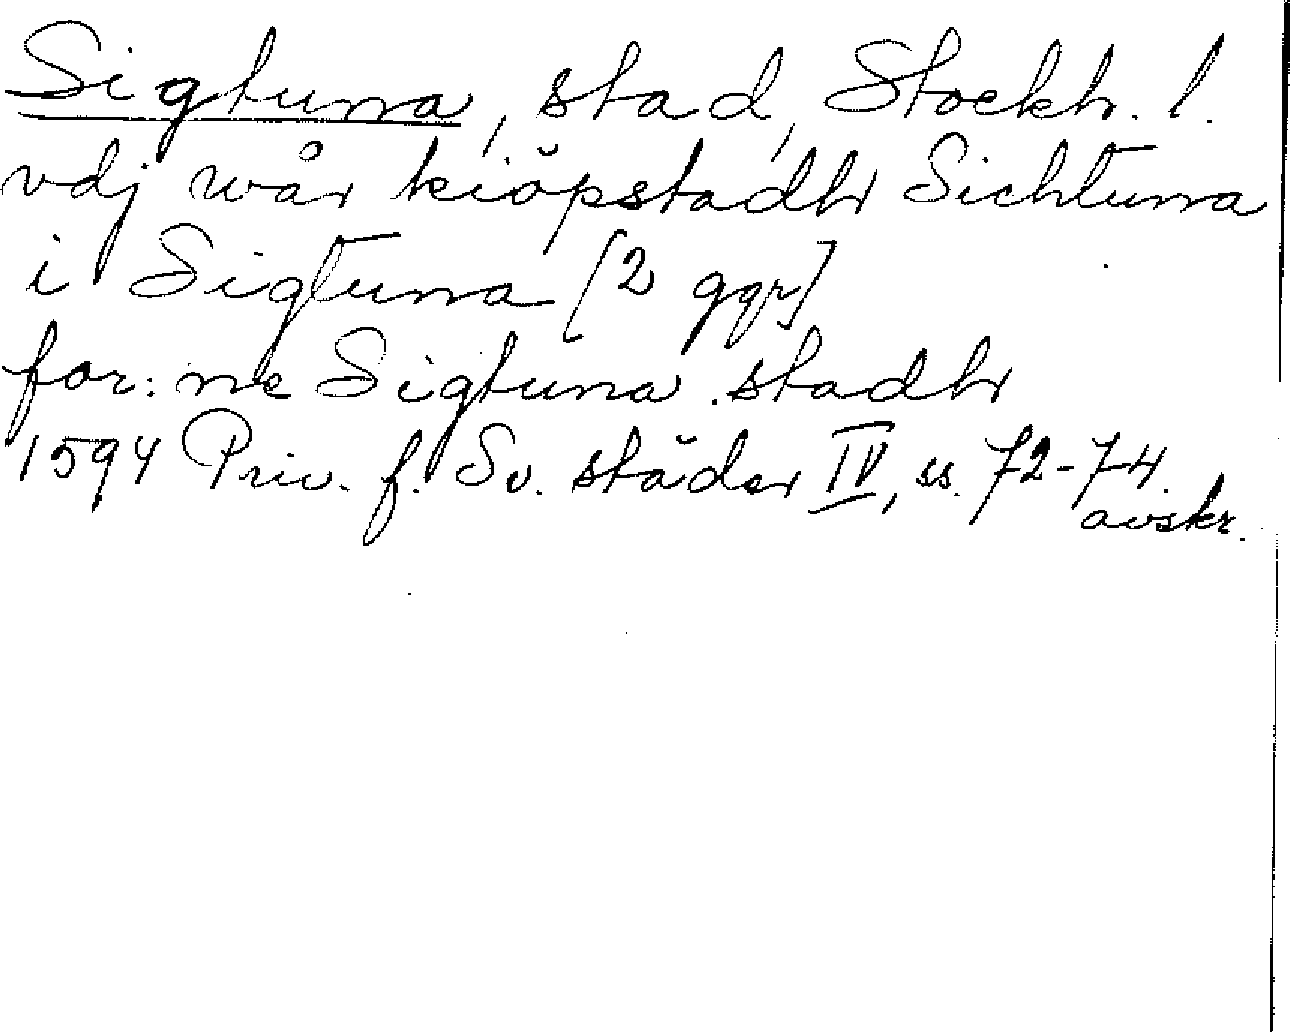 Sigtuna, stad, Stockh. l.
vdj wår kiöpstadh Sichtuna
i Sigtuna [2 ggr]
for: ne Sigtuna stadh
1594 Priv. f. Sv. städer IV, ss. 72-74.
avskr.